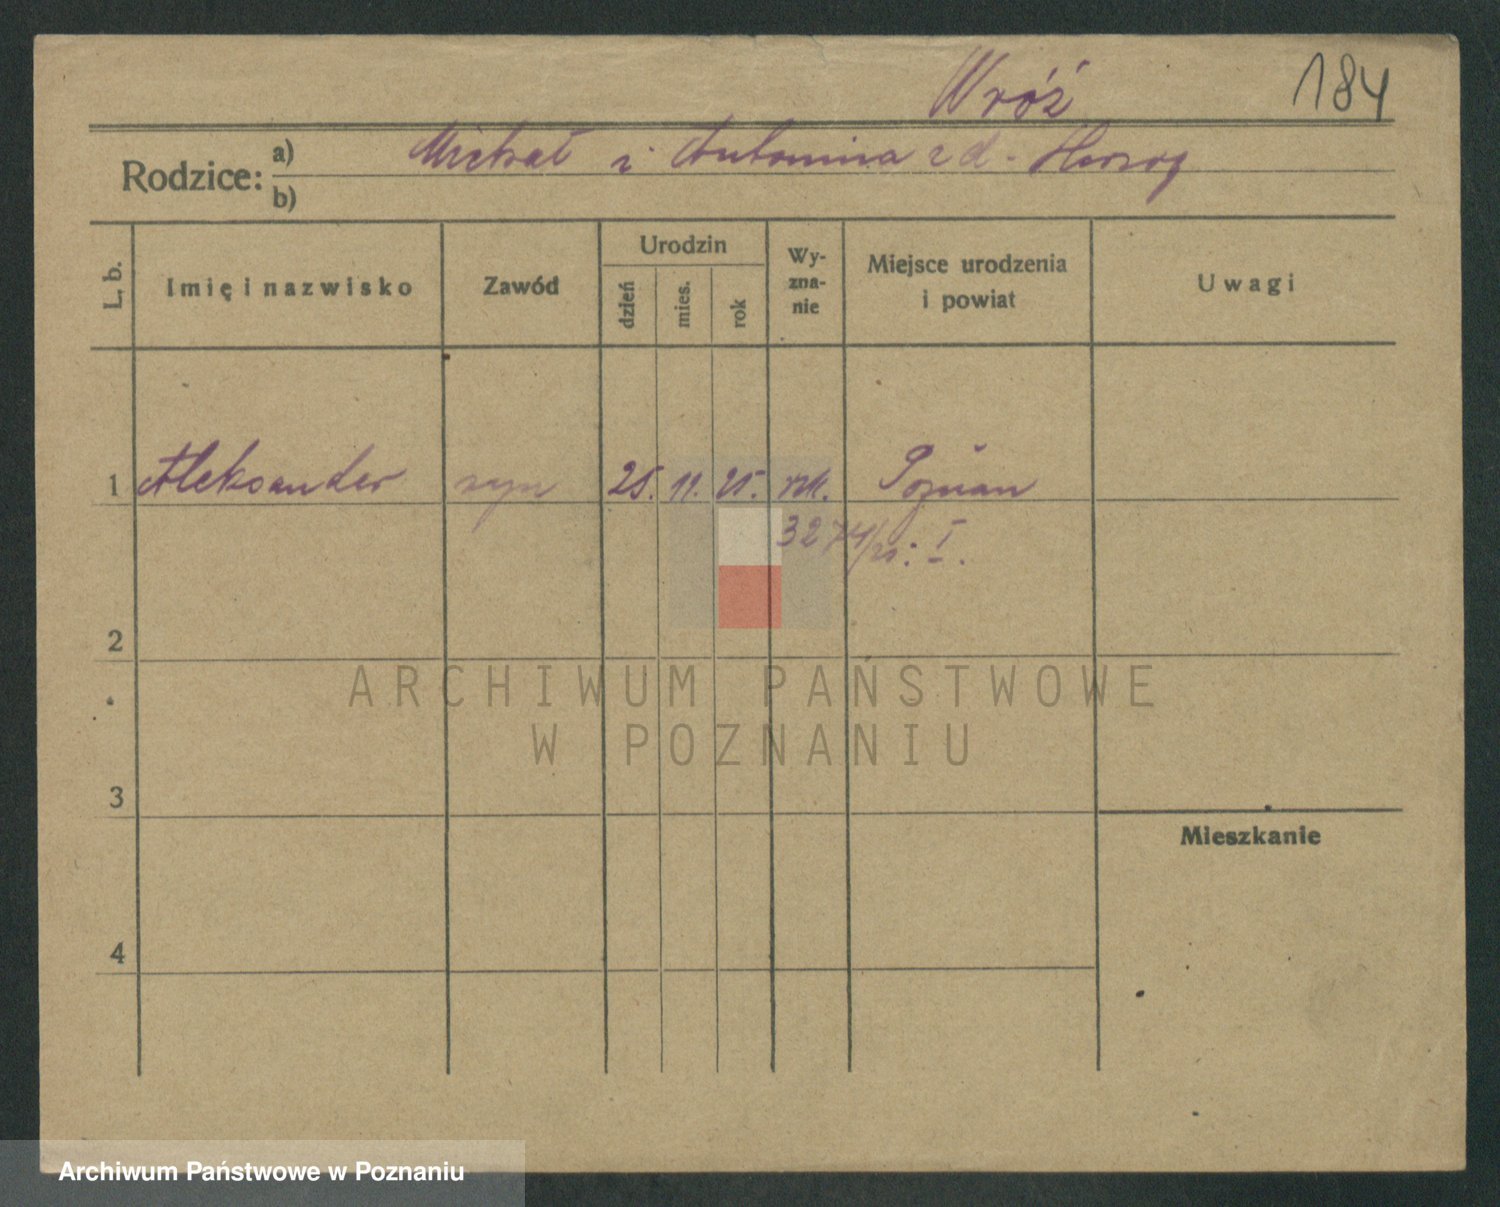 Wróż 184
Rodzice: a) Michał i Antonina z d. Herzog
b)
L. b. Imię i nazwisko Zawód Urodzin dzień mies. rok Wy-zna-nie Miejsce urodzenia i powiat Uwagi
1 Aleksander syn 25. 11. 21. rzk. Poznań
3274/21. I.
2
ARCHIWUM PAŃSTWOWE
W POZNANIU
3
Mieszkanie
4
Archiwum Państwowe w Poznaniu